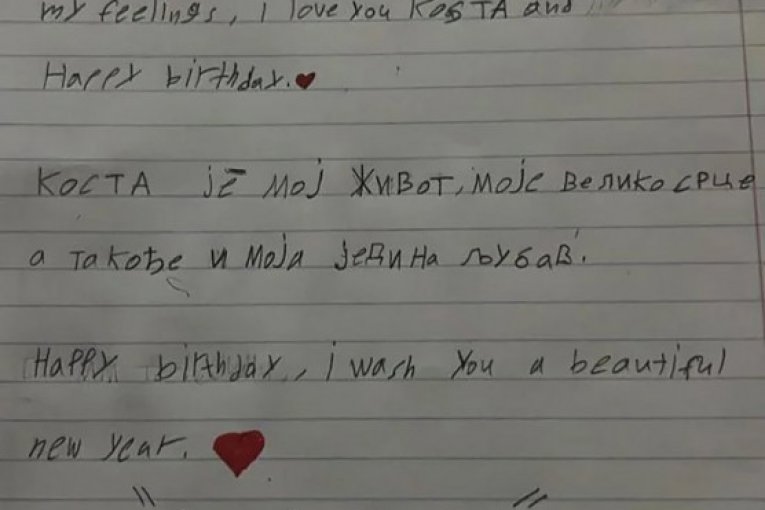 my feelings, i love you КОСТА and
Happy birthday.
КОСТА је мој живот, моје велико срце
а такође и моја једина љубав.
Happy birthday, i wash you a beautiful
new year.